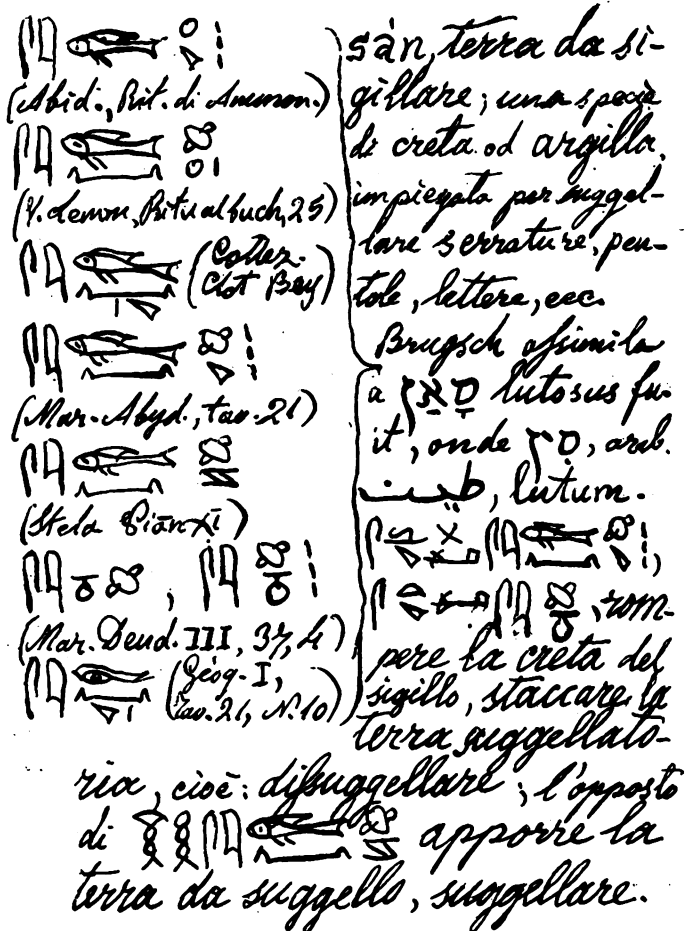 (Abid., Rit. di Ammon.)
(V. Lemm, Ritualbuch, 25)
(Collez.
Clot Bey)
(Mar. Abyd., tav. 21)
(Stela Piānχi)
(Mar. Dend. III, 37, h)
(Géog. I,
Tav. 21, N. 10)
sàn, terra da si-
gillare; una specie
di creta od argilla,
impiegata per suggel-
lare serrature, pen-
tole, lettere, ecc.
Brugsch assimila
a סָאַן lutosus fu-
it, onde סִן, arab.
طين, lutum.
rom-
pere la creta del
sigillo, staccare la
terra suggellato-
ria, cioè: dissuggellare; l'opposto
di apporre la
terra da suggello, suggellare.